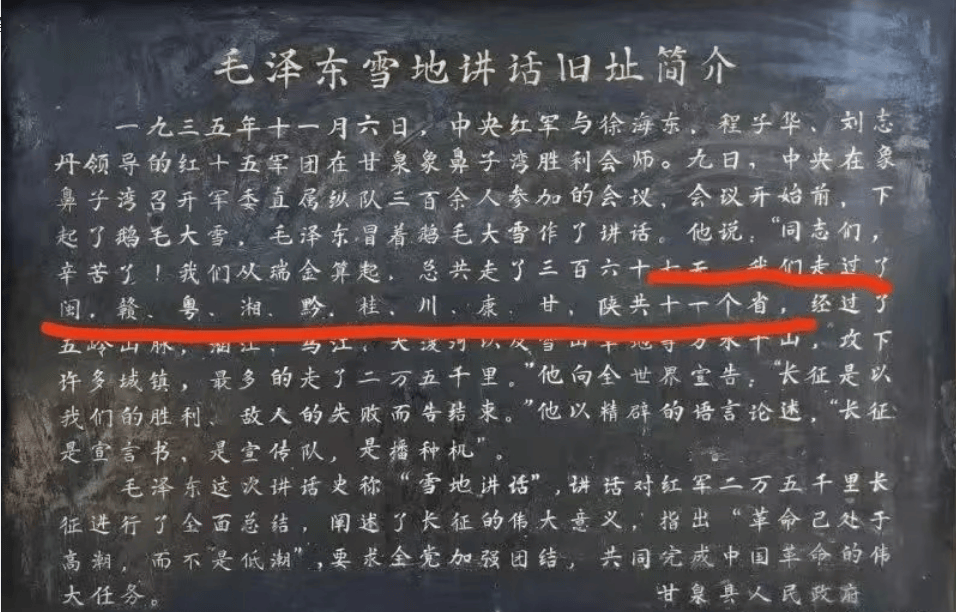 毛泽东雪地讲话旧址简介
一九三五年十一月六日，中央红军与徐海东、程子华、刘志
丹领导的红十五军团在甘泉象鼻子湾胜利会师。九日，中央在象
鼻子湾召开军委直属纵队三百余人参加的会议，会议开始前，下
起了鹅毛大雪，毛泽东冒着鹅毛大雪作了讲话。他说：“同志们，
辛苦了！我们从瑞金算起，总共走了三百六十七天。我们走过了
闽、赣、粤、湘、黔、桂、川、康、甘、陕共十一个省，经过了
五岭山脉，湘江、乌江、大渡河以及雪山草地等万水千山，攻下
许多城镇，最多的走了二万五千里。”他向全世界宣告：“长征是以
我们的胜利、敌人的失败而告结束。”他以精辟的语言论述，“长征
是宣言书、是宣传队，是播种机”。
毛泽东这次讲话史称“雪地讲话”，讲话对红军二万五千里长
征进行了全面总结，阐述了长征的伟大意义，指出“革命已处于
高潮，而不是低潮”，要求全党加强团结，共同完成中国革命的伟
大任务。
甘泉县人民政府